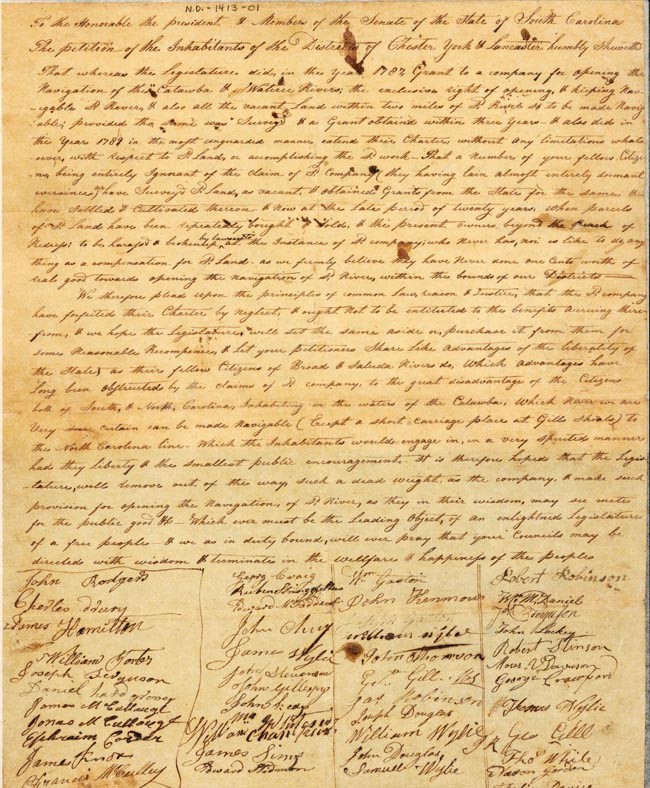 N.D.-1413-01
To the Honorable the president & Members of the Senate of the State of South Carolina
The petition of the Inhabitants of the Districts of Chester York & Lancaster humbly Sheweth
That whereas the Legislature did, in the Year 1787 Grant to a company for opening the
Navigation of the Catawba & Wateree Rivers; the exclusive right of opening, & keeping Nav-
igable Sd River, & also all the vacant Land within two miles of Sd River So to be made Navig
able; provided the same was Surveyd & a Grant obtaind within three Years - & also did in
the Year 1789 in the most unguarded manner extend their Charter, without any limitations whats
oever, with respect to Sd Land, or accomplishing the Sd work - That a Number of your fellow Citize-
ns, being entirely Ignorant of the claim of Sd Company (they having lain almost intirely dormant
eversince) have Surveyd Sd Land, as vacant, & obtained Grants from the State for the same &
have Settled & Cultivated thereon & Now at the late period of twenty years, when parcels
of Sd Land have been repeatedly bought & Sold, & the present owners beyond the reach of
Redress, to be harassd & broken up by lawsuits at the Instances of Sd company, who Never has, nor is like to do, any
thing as a compensation for Sd Land - as we firmly believe they have Never done one Cents worth of
real good towards opening the Navigation of Sd River, within the bounds of our Districts
We therefore plead upon the principles of common Law, reason & Justice, that the Sd company
have forfeited their Charter by Neglect, & ought Not to be entitled to the benefits accruing there-
from, & we hope the Legislature, will set the same aside or, purchase it from them for
some Reasonable Recompence, & Let your Petitioners Share Like Advantages of the liberality of
the State, as their fellow Citizens of Broad & Saluda Rivers do, Which Advantages have
long been Obstructed by the claims of Sd company, to the great disadvantage of the Citizens
both of South, & North, Carolina, Inhabiting on the waters of the Catawba; Which River we are
Very certain can be made Navigable (Except a short carriage place at Gills Shoals) to
the North Carolina line - Which the Inhabitants woulde engage in, in a very spirited manner
had they liberty & the smallest public encouragement. - It is therefore hoped that the Legis-
lature, will remove out of the way, such a dead weight, as the company, & make such
provision for opening the Navigation, of Sd River, as they in their wisdom, may see mete
for the public good &c - Which ever must be the Leading Object, of an enlightned Legislature
of a free people - & we as in duty bound, will ever pray that your Councils may be
directed with wisdom & terminate in the wellfare & happiness of the people
John Rodgers
Charles
James Hamilton
William Porter
Joseph Ferguson
Daniel
James McCullough
Jonas McCullough
Ephraim
James Knox
Francis McCulley
Georg Craig
Reuben
Edward McFadden
John
James Wylie
John Stevenson
John Gillespey
John
William
James Sims
Edward
Wm Gaston
John Kenmore
William Wylie
John Thomson
Gill
Jas Robinson
Joseph Douglas
William Wylie
John Douglas
Samuel Wylie
Robert Robinson
Wm McDaniel
Ferguson
John Lackey
Robert Stinson
Moses
George Crawford
Thomas Wylie
Geo Gill
Thos White